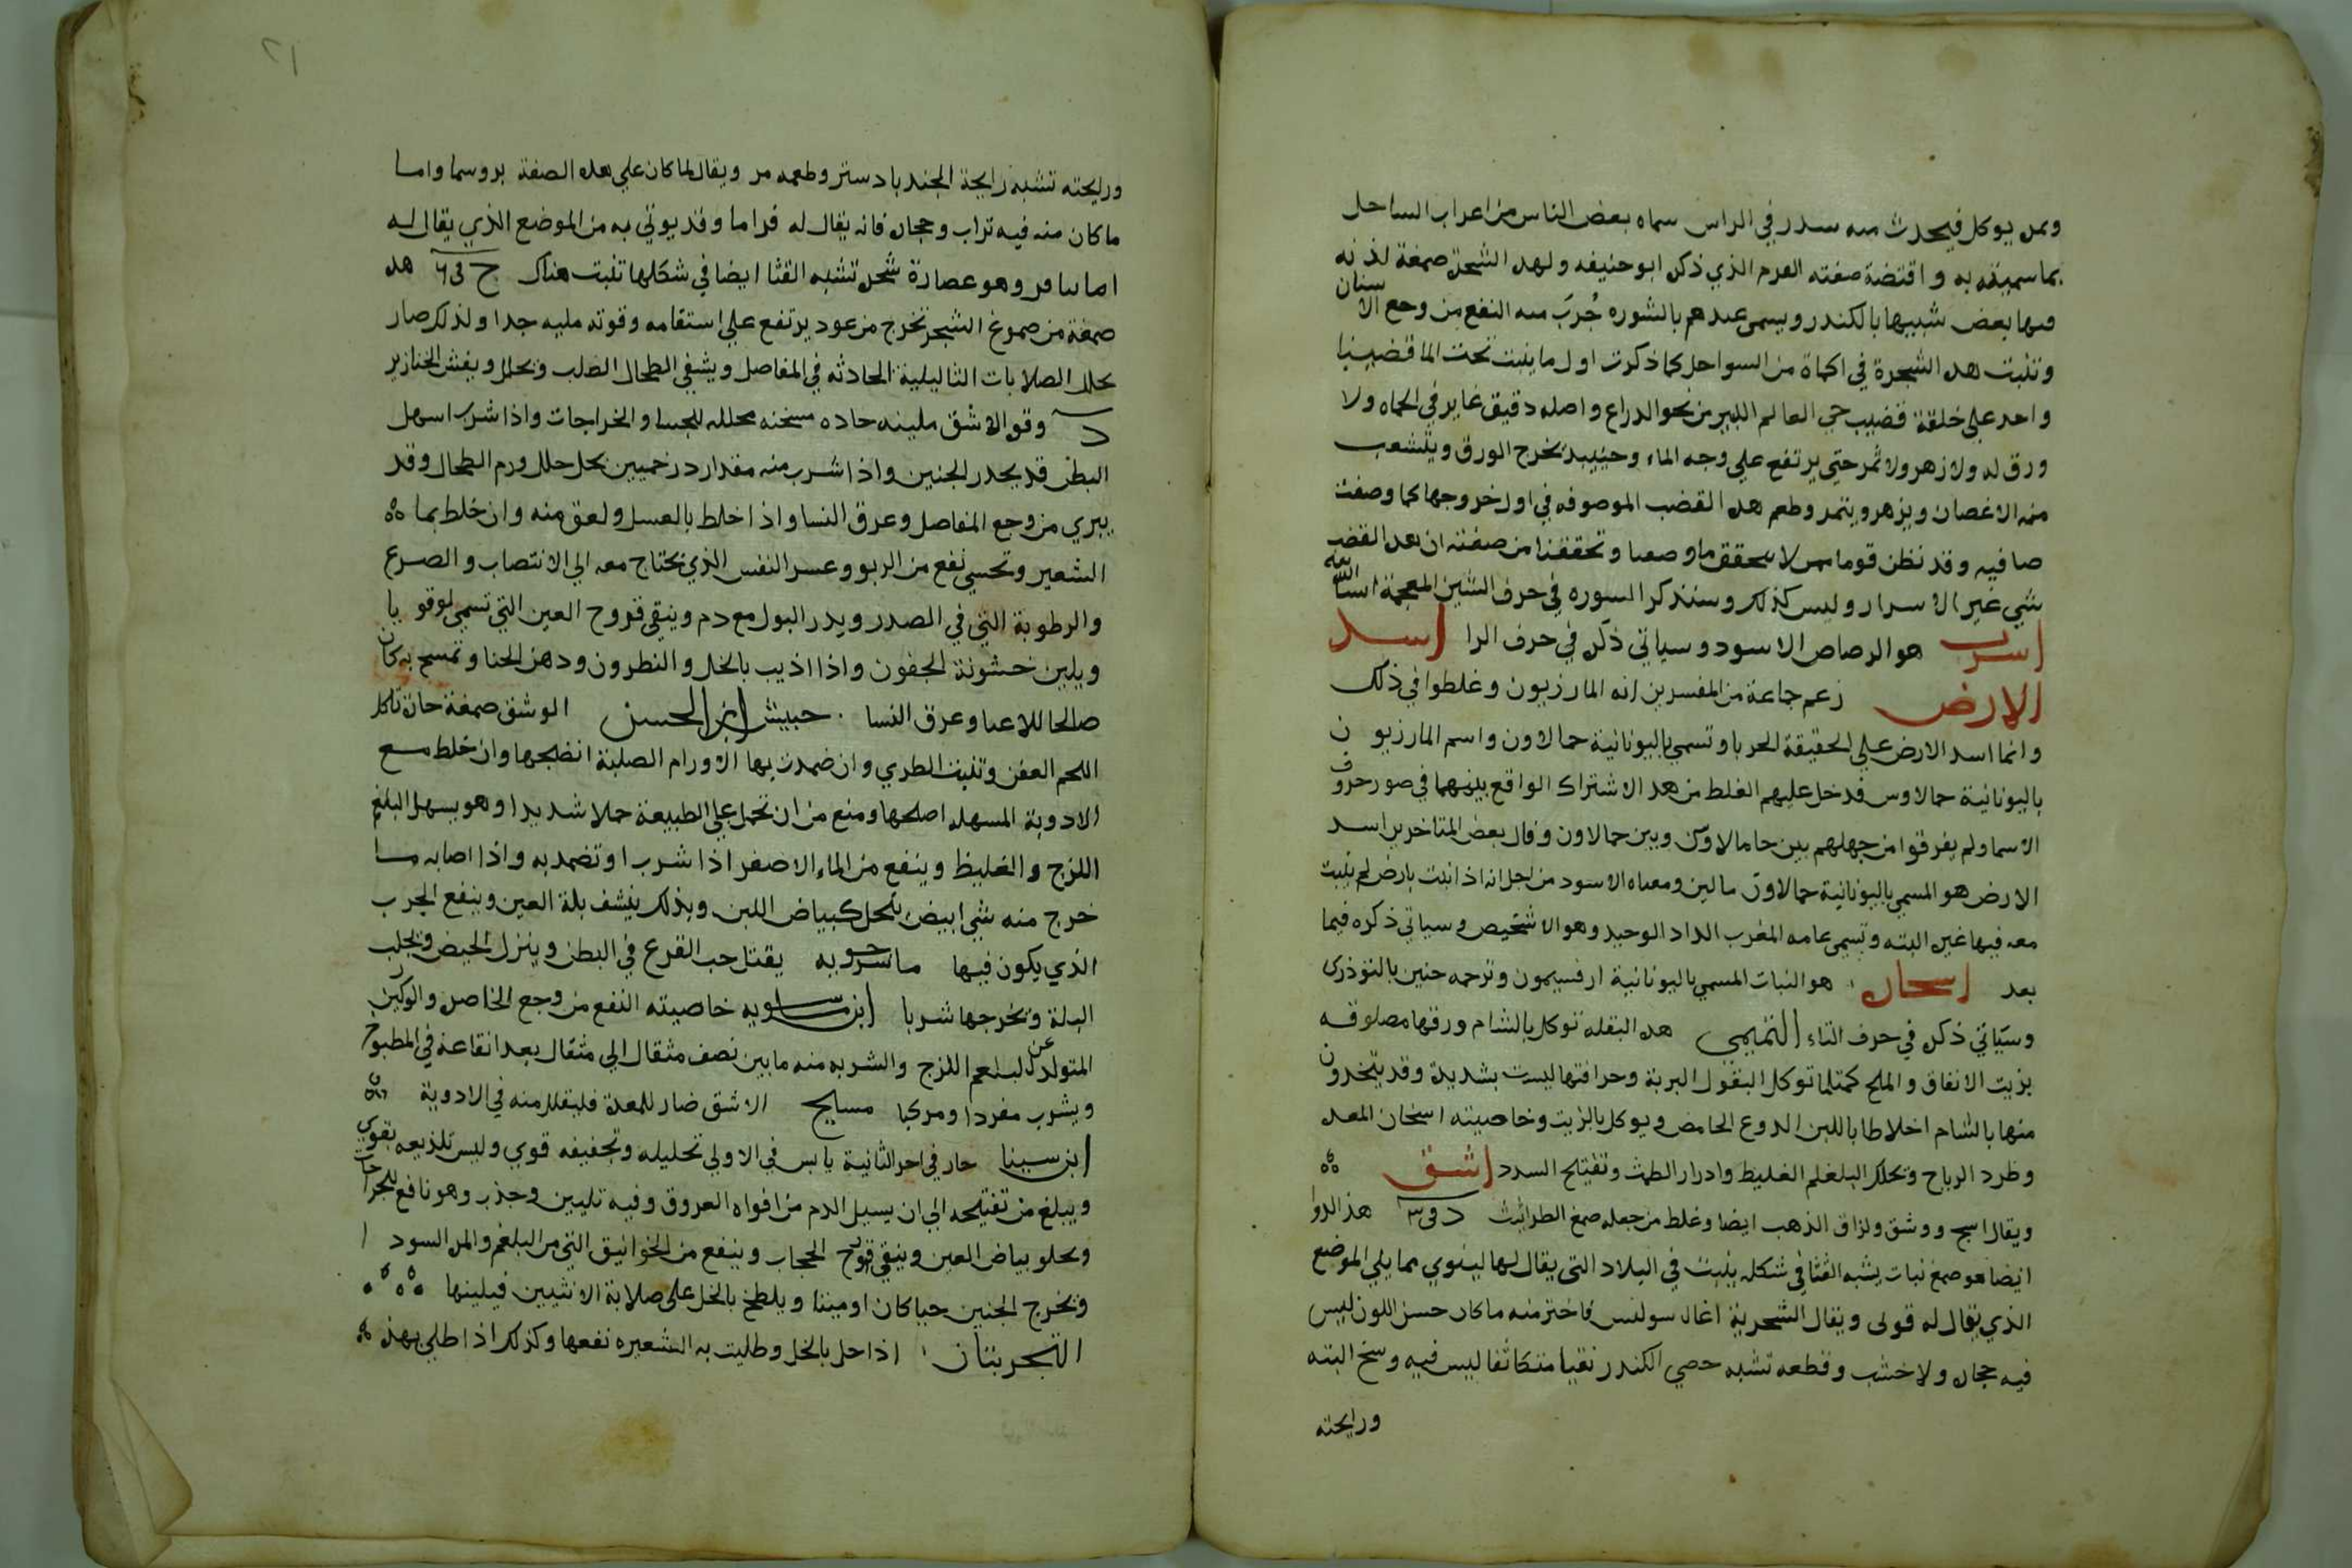 وممن يوكل فيحدث منه سدر في الراس سماه بعض الناس من اعراب الساحل
بما سميته به واقتضة صفته العرم الذي ذكره ابو حنيفه ولهده الشجرة صمغة لذنه
فيها بعض شبيها بالكندر ويسمى عندهم بالشوره جُرّبَ منه النفع من وجع الاسنان
وتنبت هده الشجرة في اكماة من السواحل كما ذكرت اول ما ينبت تحت الما قضيبا
واحد على خلقة قضيب حي العالم الكبير من نحو الدراع واصله دقيق غاير في الحماه ولا
ورق له ولا زهر ولا ثمر حتي يرتفع علي وجه الماء وحينيد تخرج الورق ويتشعب
منه الاغصان ويزهر ويثمر وطعم هده القضب الموصوفه في اول خروجها كما وصفت
صافيه وقد نظن قوما ممن لا يتحقق ما وصعنا وتحققنا من صفته ان هدا القضب
شي غير الاسرار وليس كذلك وسنذكر السوره في حرف الشين المعجمة انشا الله
اسرب هو الرصاص الاسود وسياتي ذكره في حرف الرا اسد
الارض زعم جماعة من المفسرين انه المازريون وغلطوا في ذلك
وانما اسد الارض علي الحقيقة الحربا وتسمي باليونانية حمالاون واسم المازريون
باليونانية حمالاوس فدخل عليهم الغلط من هدا الاشتراك الواقع بينهما في صور حروف
الاسما ولم يفرقوا من جهلهم بين حامالاون وبين حمالاون وقال بعض المتاخرين اسد
الارض هو المسمي باليونانية حمالاون مالين ومعناه الاسود من اجل انه اذا نبت بارض لم ينبت
معه فيها غيره البته وتسمي عامه المغرب الداد الوحيد وهو الاشخيص وسياتي ذكره فيما
بعد اسحان هو النبات المسمي باليونانية ارفسيمون وترجمه حنين بالتوذري
وسيَاتي ذكره في حرف التاء التميمي هده البقله توكل بالشام ورقها مصلوقه
بزيت الانفاق والملح كمثلما توكل البقول البرية وحرافتها ليست بشديدة وقد يتخدون
منها بالشام اخلاطا باللبن الدوع الحامض ويوكل بالزيت وخاصيته اسخان المعده
وطرد الرياح وتحلل البلغلم الغليظ وادرار الطمث وتفتيح السدد اشق
ويقال اسج ووشق ولزاق الذهب ايضا وغلط من جعله صمغ الطراثيث د في ٣ هذا الدوا
ايضا هو صمغ نبات يشبه القثا في شكله ينبت في البلاد التي يقال لها لينوي مما يلي الموضع
الذي يقال له قولي ويقال الشحرية اغال سولنس فاختر منه ما كان حسن اللون ليس
فيه حجاره ولا خشب وقطعه تشبه حصي الكندر نقيا متكاثفا ليس فيه وسخ البته
ورايحته
٢١
ورايحته تشبه رايحة الجندبادستر وطعمه مر ويقال لما كان علي هده الصفة بروسما واما
ما كان منه فيه تراب وحجاره فانه يقال له فراما وقد يوتي به من الموضع الذي يقال له
امانيافر وهو عصارة شجره تشبه القثا ايضا في شكلها تنبت هناك ج في ٦ هده
صمغة من صموغ الشجر تخرج من عود يرتفع علي استقامه وقوته ملينه جدا ولذلك صار
يحلل الصلابات الثاليلية الحادثه في المفاصل ويشفي الطحال الصلب ويحلل ويفش الخنازير
د وقوة الاشق ملينه حاده مسخنه محلله للجسا والخراجات واذا شرب اسهل
البطن قد يحدر الجنين واذا شرب منه مقدار درخميين بخل حلل ورم الطحال وقد
يبري من وجع المفاصل وعرق النسا واذا خلط بالعسل ولعق منه وان خلط بما
الشعير وتحسي نفع من الربو وعسر النفس الذي تحتاج معه الي الانتصاب والصرع
والرطوبة التي في الصدر ويدر البول مع دم وينقي قروح العين التي تسمي لوقوما
ويلين خشونة الجفون واذا اذيب بالخل والنطرون ودهن الحنا وتمسح به كان
صالحا للاعيا وعرق النسا حبيش ابن الحسن الوشق صمغة حارة تاكل
اللحم العفن وتنبت الطري وان ضمدت بها الاورام الصلبة انضجها وان خلط مع
الادوية المسهله اصلحها ومنع من ان تحمل علي الطبيعة حملا شديدا وهو يسهل البلغم
اللزج والغليظ وينفع من الماء الاصفر اذا شرب او تضمد به واذا اصابه ما
خرج منه شي ابيض ينحل كبياض اللبن وبذلك ينشف بلة العين وينفع الجرب
الذي يكون فيها ماسرحويه يقتل حب القرع في البطن وينزل الحيض ويجلب
البلة وتخرجها شربا ابن ماسويه خاصيته النفع من وجع الخاصره والوركين
المتولد عن البلعم اللزج والشربه منه ما بين نصف مثقال الي مثقال بعد انقاعه في المطبوخ
ويشرب مفردا ومركبا مسايح الاشق ضار للمعدة فليقلل منه في الادوية
ابن سينا حار في اخر الثانية يابس في الاولي تحليله وتجفيفه قوي وليس تلذيعه بقوي
ويبلغ من تفتيحه الي ان يسيل الدم من افواه العروق وفيه تليين وجذب وهو نافع للجراحات
ويجلو بياض العين وينقي قروح الحجاب وينفع من الخوانيق التي من البلغم والمره السودا
وتخرج الجنين حيا كان او ميتا ويلطخ بالخل على صلابة الانثيين فيلينها
التجربتان اذا حل بالخل وطليت به الشعيره نفعها وكذلك اذا طلي بهذه